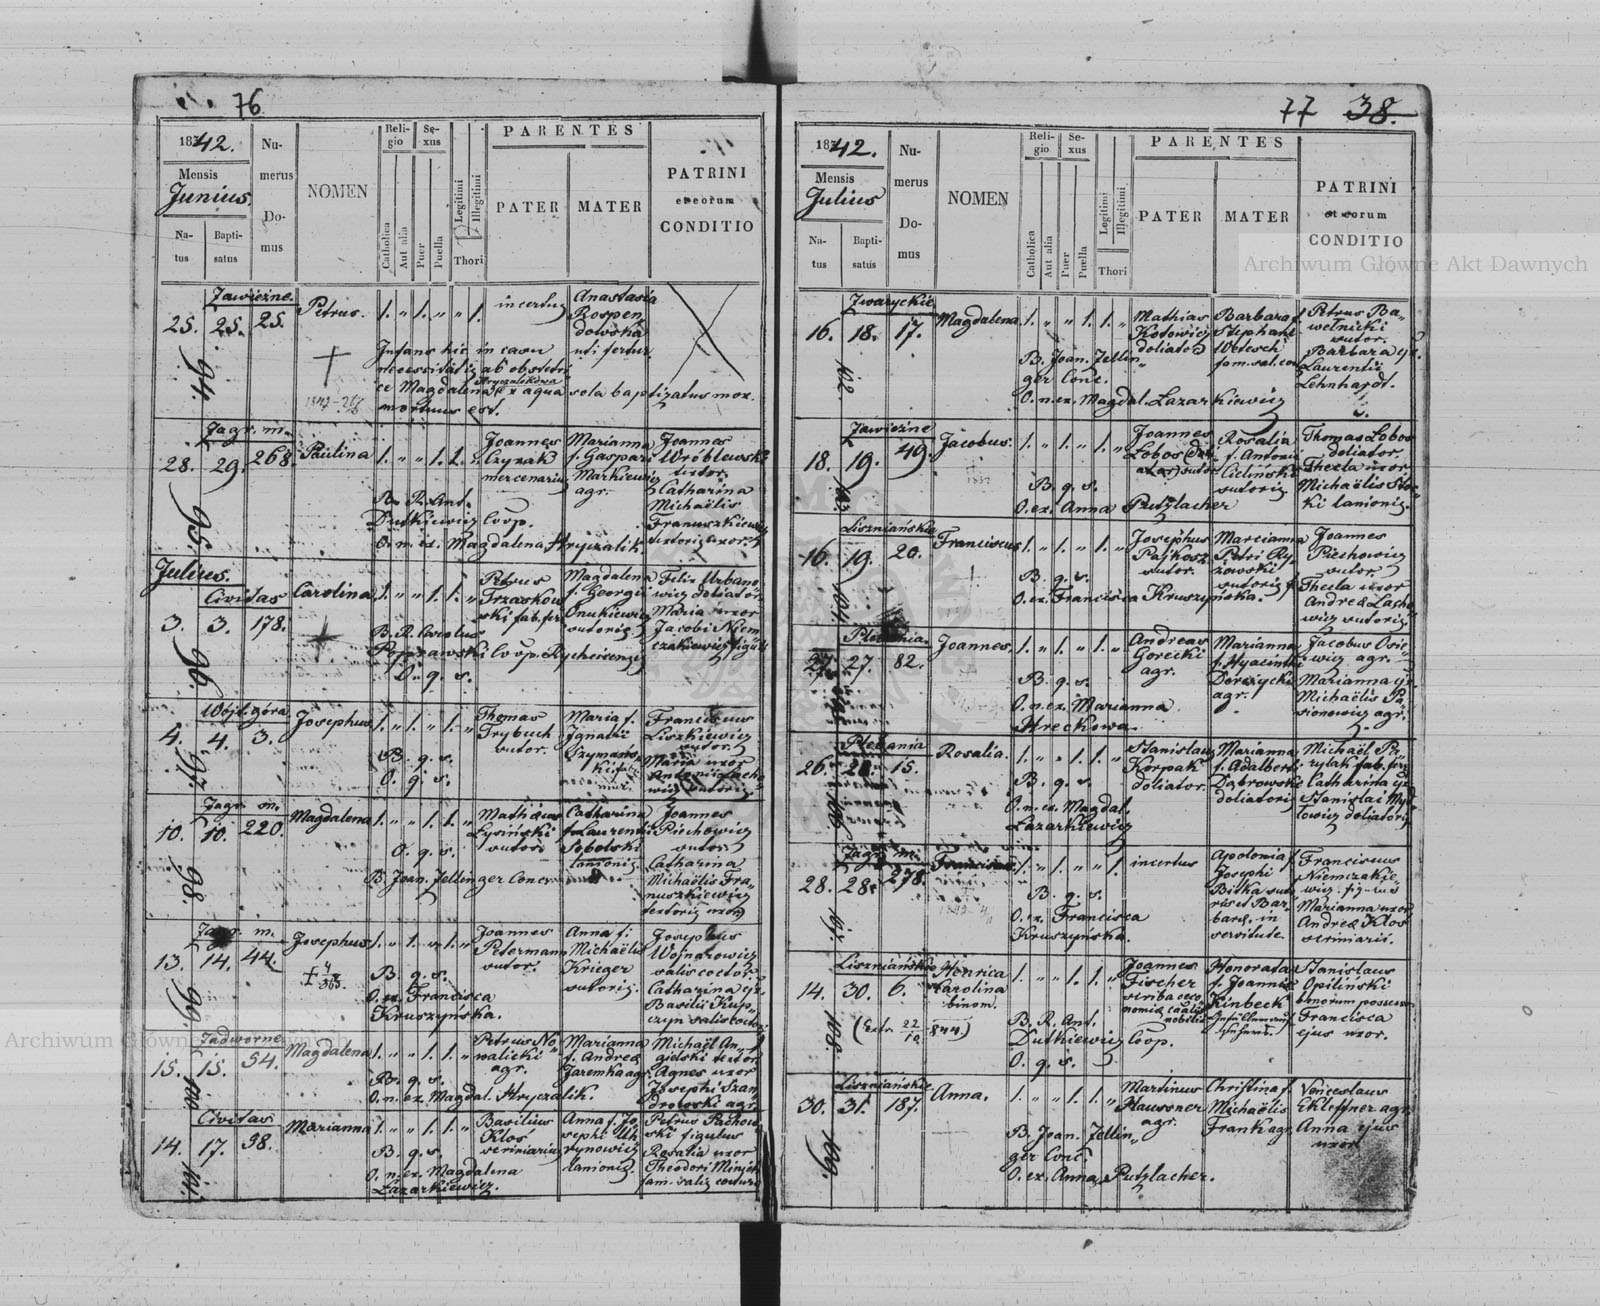 76
1842.
Mensis
Junius.
Natus
Baptisatus
Numerus Domus
NOMEN
Religio
Catholica
Aut alia
Sexus
Puer
Puella
Legitimi
Illegitimi
Thori
PARENTES
PATER
MATER
PATRINI
et eorum
CONDITIO
Zawieźne.
25. 25. 25.
94.
Petrus.
1. " 1. " " 1.
incertus
Anastasia
Rospen
dowska
uti fertur
Infans hic in casu
necessitatis ab obstetri
ce Magdalena Stryczalikowa ex aqua sola baptizatus mox
mortuus est.
Zagr. m.
28. 29. 268.
95.
Paulina
1. " " 1. 1. "
Joannes
Czyzak
mercenarius
Marianna
f. Gaspari
Markiewicz
agr.
Joannes
Wróblewski
textor.
Catharina
Michaëlis
Franuszkiewicz
textoris uxor.
B. R. Ant.
Dutkiewicz Coop.
O. n. ex. Magdalena Stryczalik.
Julius.
Civitas
3. 3. 178.
96.
Carolina
1. " " 1. 1. "
Petrus
Trzaskow
ski fab. fer.
Magdalena
f. Georgii
Onukiewicz
sutoris
Felix Urbano
wicz doliator
Maria uxor
Jacobi Niem
czakiewicz figuli
B. R. Carolus
Poprawski Coop. Rychcicensis
O. q. s.
Wójt. góra
4. 4. 3.
97.
Josephus
1. " 1. " 1. "
Thomas
Trybuch
sutor.
Maria f.
Ignatii
Szymańs
ki fabri
mur.
Franciscus
Liszkiewicz
sutor.
Maria uxor
B. q. s.
O. q. s.
Zagr. m.
10. 10. 220.
98.
Magdalena
1. " " 1. 1. "
Mathaeus
Łysiński
sutor
Catharina
f. Laurentii
Sobolski
lanionis
Joannes
Piechowicz
sutor
Catharina
Michaëlis Fra
nuszkiewicz
textoris uxor
O. q. s.
B. Joan. Jellinger Conc.
Zagr. m.
13. 14. 44.
99.
Josephus
1. " 1. " 1. "
Joannes
Petermann
sutor.
Anna f.
Michaëlis
Krieger
sutoris.
Josephus
Wojnarowicz
salis coctor.
Catharina ux.
Basilii Kup
czyn salis coctor
B. q. s.
O. ex. Francisca
Kruszyńska.
Zadworne
15. 15. 54.
100.
Magdalena
1. " " 1. 1. "
Petrus No
walicki
agr.
Marianna
f. Andreæ
Jaremka agr.
Michaël An
gielski textor
Agnes uxor
Josephi Szan
drowski agr.
B. q. s.
O. n. ex. Magdal. Stryczalik.
Civitas
14. 17. 58.
101.
Marianna
1. " " 1. 1. "
Basilius
Kłos
seriniarius
Anna f. Jo
sephi Uh
rynowicz
lanionis
Petrus Pachow
ski figulus
Rosalia uxor
Theodori Minjek
fam. salis coctura
B. q. s.
O. n. ex. Magdalena
Łazarkiewicz.
77 38.
1842.
Mensis
Julius
Natus
Baptisatus
Numerus Domus
NOMEN
Religio
Catholica
Aut alia
Sexus
Puer
Puella
Legitimi
Illegitimi
Thori
PARENTES
PATER
MATER
PATRINI
et eorum
CONDITIO
Archiwum Główne Akt Dawnych
Zwaryckie
16. 18. 17.
102.
Magdalena
1. " " 1. 1. "
Mathias
Kotowicz
doliator
Barbara f.
Stephani
Wetesch
fam. sal. coct.
Petrus Ba
wełnicki
sutor.
Barbara ux.
Laurentii
Lehnhardt.
B. Joan. Jellin
ger Conc.
O. n. ex. Magdal. Łazarkiewicz
Zawieźne
18. 19. 49.
103.
Jacobus.
1. " 1. " 1. "
Joannes
Łobos
sutor
Rosalia
f. Antonii
Cieliński
sutoris
Thomas Łobos
doliator.
Thecla uxor
Michaëlis Sło
ki lanionis.
B. q. s.
O. ex. Anna Putzlacher
Liszniańskie
16. 19. 20.
104.
Franciscus
1. " 1. " 1. "
Josephus
Pajkosz
sutor.
Marianna
Petri Ry
żowski
sutoris f.
Joannes
Piechowicz
sutor
Thecla uxor
Andreæ Lacho
wicz sutoris.
B. q. s.
O. ex. Francisca Kruszyńska.
Plebania.
27. 27. 82.
105.
Joannes.
1. " 1. " 1. "
Andreas
Gorecki
agr.
Marianna
f. Hyacinthi
Dorczycki
agr.
Jacobus Osie
wicz agr.
Marianna ux.
Michaëlis Pa
sionowicz agr.
B. q. s.
O. n. ex. Marianna
Hreckowa.
Plebania
26. 28. 15.
106.
Rosalia.
1. " " 1. 1. "
Stanislaus
Korpak
doliator.
Marianna
f. Adalberti
Dąbrowski
doliatoris
Michaël Pa
rylak fab. fer.
Catharina ux.
Stanislai My
towicz doliatoris
B. q. s.
O. n. ex. Magdal.
Łazarkiewicz
Zagr. m.
28. 28. 278.
107.
Franciscus
1. " 1. " " 1.
incertus
Apolonia f.
Josephi
Bitka suto
ris et Bar
baræ, in
servitute.
Franciscus
Niemczakie
wicz figulus
Marianna uxor
Andreæ Kłos
seriniarii.
B. q. s.
O. ex. Francisca
Kruszyńska.
Liszniańskie
14. 30. 6.
108.
Henrica
Carolina
binom.
(Extr. 22/10 844)
1. " " 1. 1. "
Joannes
Fischer
scriba oeco
nomiæ cæalis
nobilis
Honorata
f. Joannis
Kinbeck
Stanislaus
Opiliński
bonorum possessor
Francisca
ejus uxor.
B. R. Ant.
Dutkiewicz Coop.
O. q. s.
Liszniańskie
30. 31. 187.
109.
Anna.
1. " " 1. 1. "
Martinus
Haussner
agr.
Christina f.
Michaëlis
Frank agr.
Venceslaus
Ekleffner agr.
Anna ejus
uxor
B. Joan. Jellin
ger Conc.
O. ex. Anna Putzlacher.
Archiwum Główne Akt Dawnych